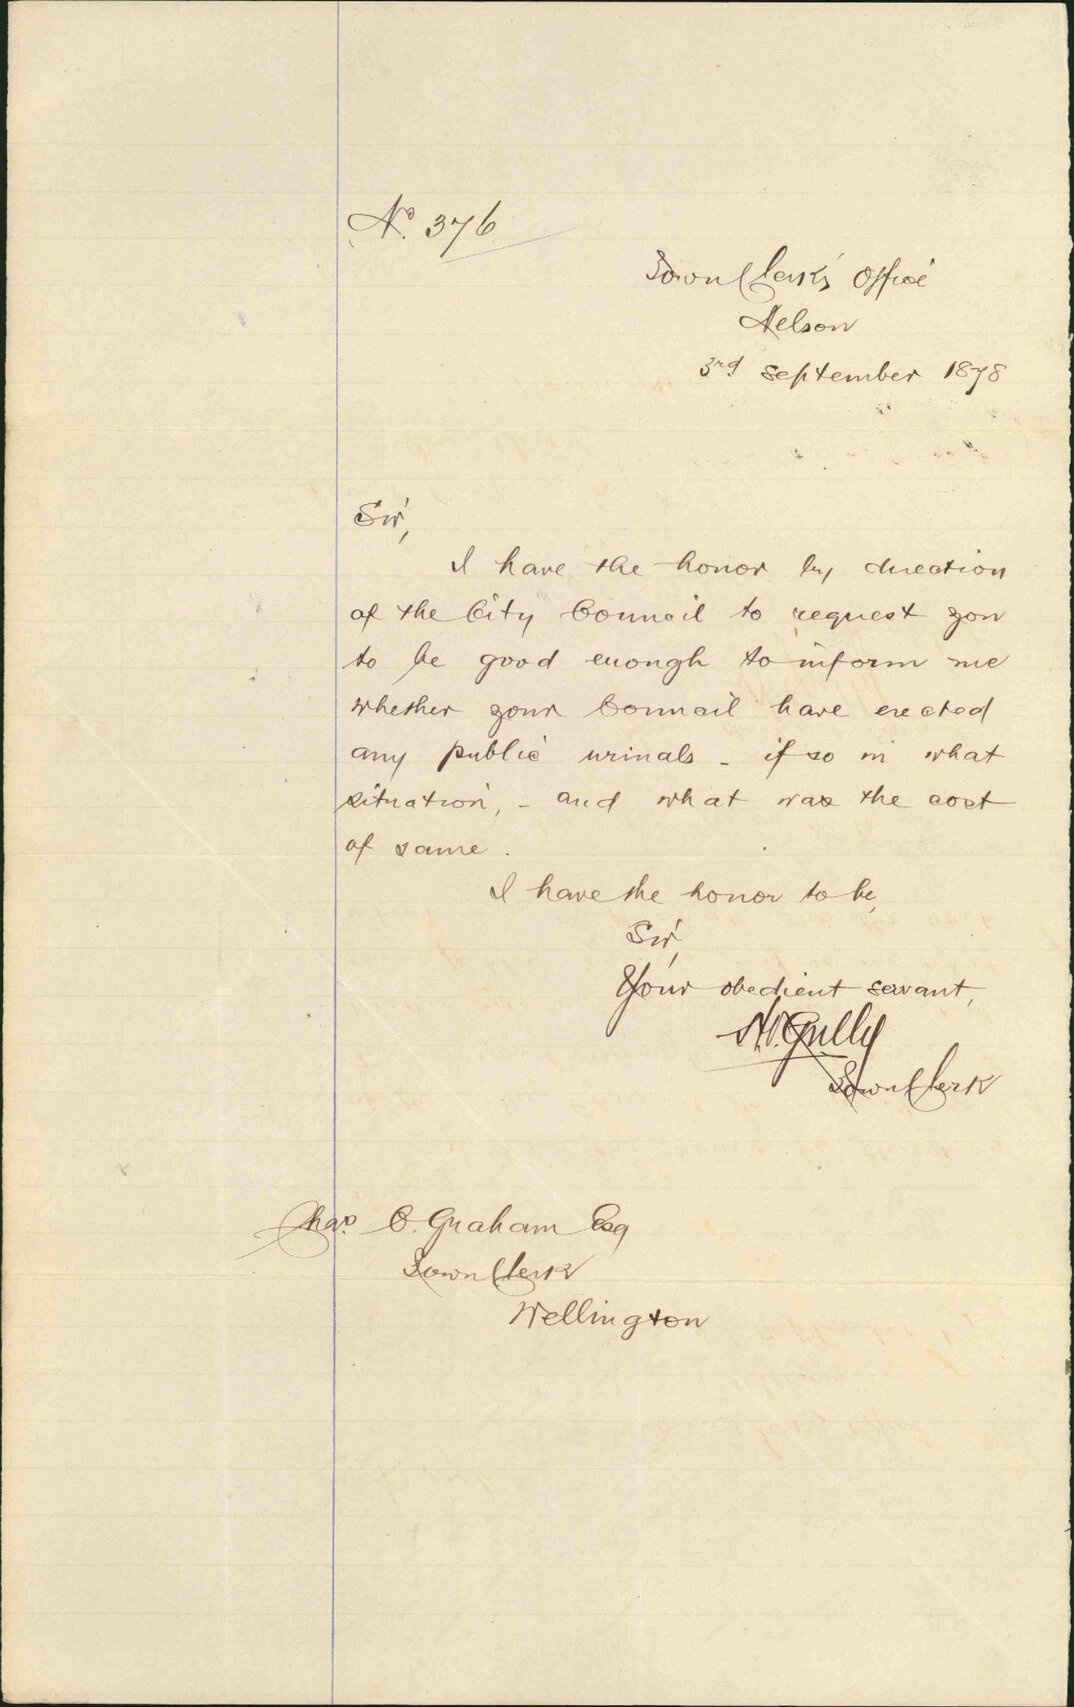 No. 376
Town Clerk's Office
Nelson
3rd September 1878
Sir,
I have the honor by direction
of the City Council to request you
to be good enough to inform me
whether your Council have erected
any public urinals - if so in what
situation, - and what was the cost
of same.
I have the honor to be,
Sir,
Your obedient servant,
Gully
Town Clerk
Chas. C. Graham Esq
Town Clerk
Wellington